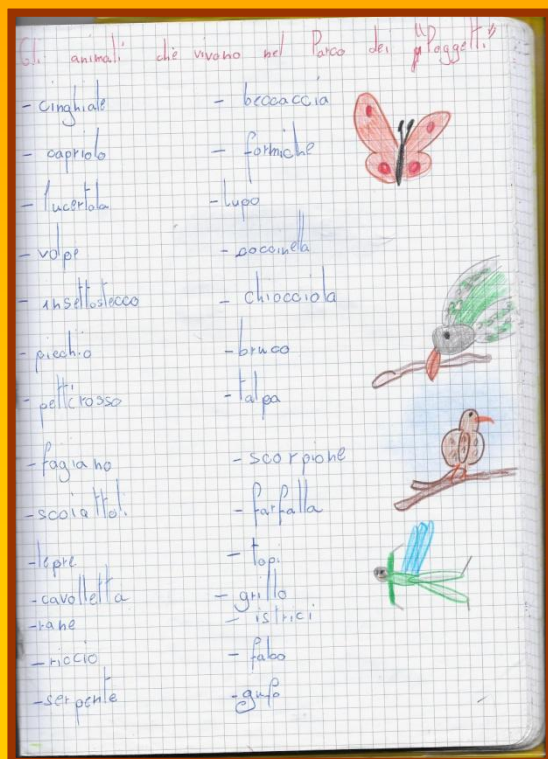 Gli animali che vivono nel Parco dei "Poggetti"
- cinghiale
- capriolo
- lucertola
- volpe
- insettostecco
- picchio
- pettirosso
- fagiano
- scoiattoli
- lepre
- cavolletta
- rane
- riccio
- serpente
- beccaccia
- formiche
- lupo
- coccinella
- chiocciola
- bruco
- talpa
- scorpione
- farfalla
- topi
- grillo
- istrici
- falco
- gufo